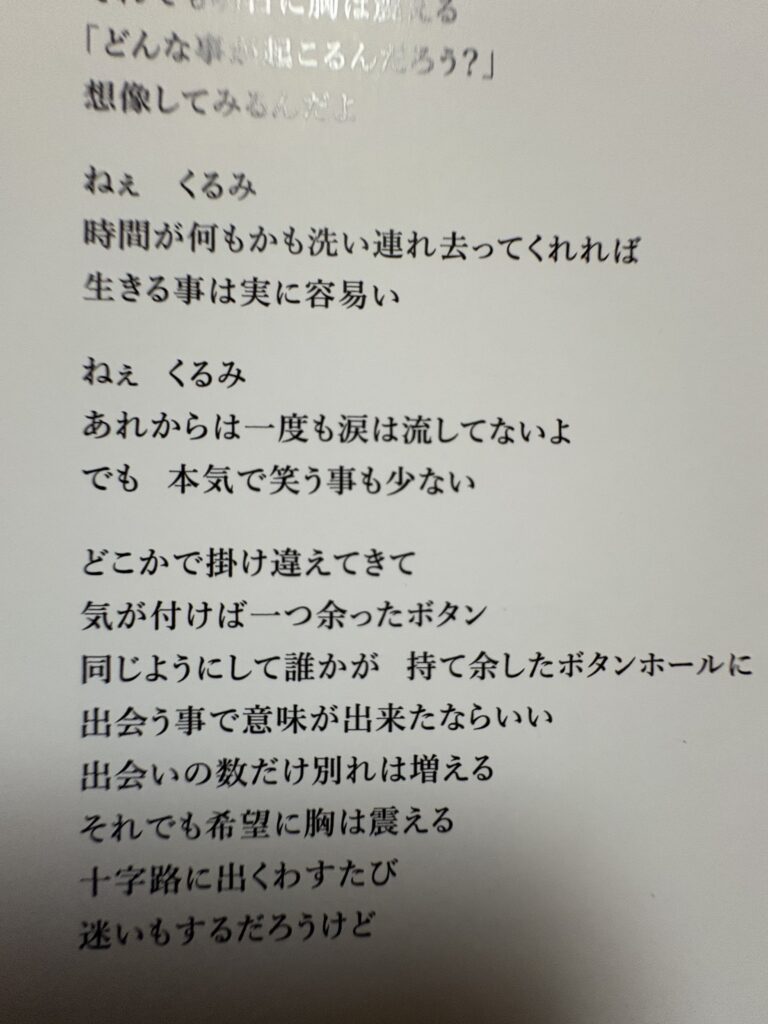 に胸は震える
「どんな事が起こるんだろう?」
想像してみるんだよ
ねぇ　くるみ
時間が何もかも洗い連れ去ってくれれば
生きる事は実に容易い
ねぇ　くるみ
あれからは一度も涙は流してないよ
でも　本気で笑う事も少ない
どこかで掛け違えてきて
気が付けば一つ余ったボタン
同じようにして誰かが　持て余したボタンホールに
出会う事で意味が出来たならいい
出会いの数だけ別れは増える
それでも希望に胸は震える
十字路に出くわすたび
迷いもするだろうけど